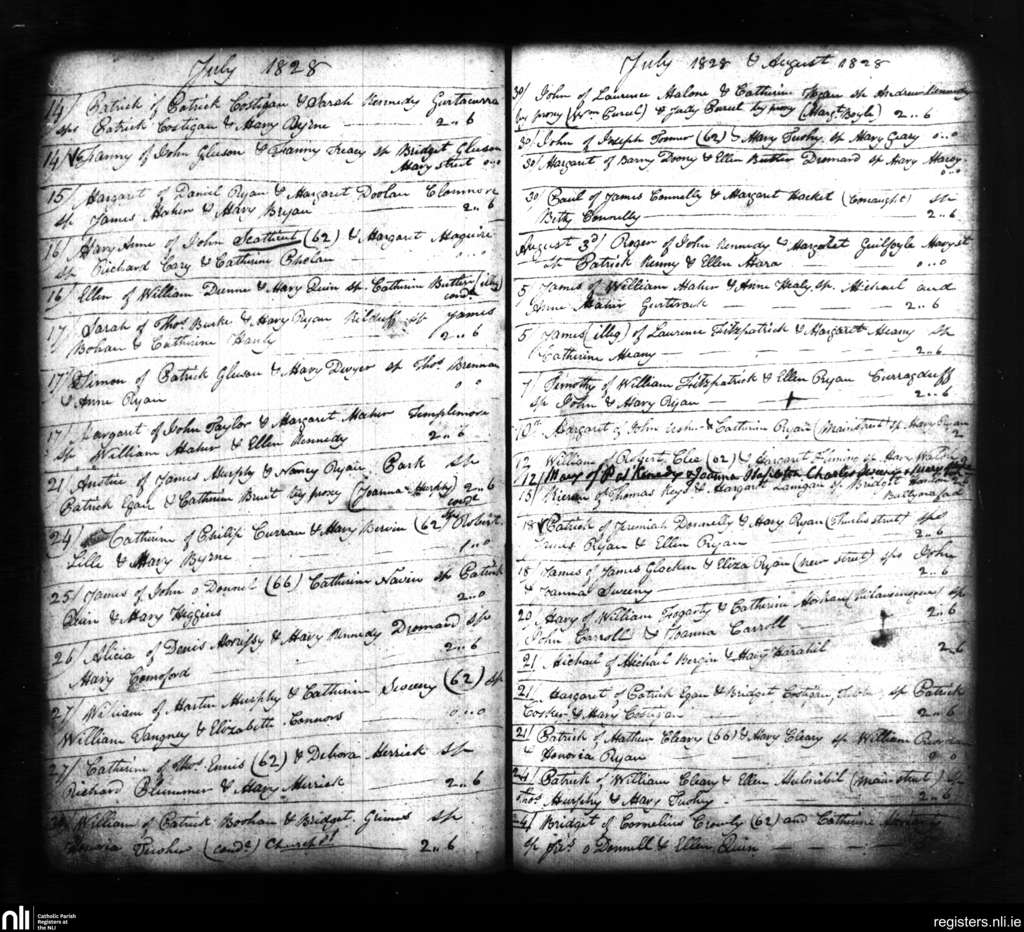 July 1828
14/ Patrick of Patrick Costigan & Sarah Kennedy Gurtacurra
sps Patrick Costigan & Mary Byrne 2..6
14/ Fanny of John Gleeson & Fanny Treacy sp Bridget Gleeson
Mary street o..o
15/ Margaret of Daniel Ryan & Margaret Doolan Clonmore
sp James Maher & Mary Bryan 2..6
16/ Mary Anne of John (62) & Margaret Maguire
sp Richard Cary & Catherine Pholan
16/ Ellen of William Dunne & Mary Quin sp Catherine Butler (illeg)
cond.
17/ Sarah of Thos. Burke & Mary Ryan Kilduff sp James
Bohan & Catherine Hanly 2..6
17/ Simon of Patrick Gleson & Mary Dwyer sp Thos. Brennan
& Anne Ryan o o
17/ Margaret of John Taylor & Margaret Maher Templemore
sp William Maher & Ellen Kennedy 2..6
21 of James Murphy & Nancy Ryan. Park sp
Patrick Egan & Catherine by proxy (Joanna Murphy) 2..6
24/ Catherine of Philip Curran & Mary (62) Robert
Lille & Mary Byrne
25/ James of John o Donnel (66) Catherine sp Patrick
Quin & Mary Higgins 2..o
26 Alicia of Denis & Mary Kennedy Dromard sp
Mary Comeford 2..6
27/ William of Martin Murphy & Catherine Sweeny (62) sp
William Tangney & Elizabeth Connors o..o
27/ Catherine of Thos. Ennis (62) & Debora Herrick sp
Richard Plummer & Mary 2..6
William of Patrick & Bridget Grimes sp
(cond.) 2..6
July 1828 & August 1828
30/ John of Laurence Malone & Catherine Egan sp Andrew Kennedy
by proxy (Wm Purcel) & Judy Purcel by proxy (Margt. Boyle) 2..6
30/ John of Joseph (62) & Mary Tuohy sp Mary Geary o..o
30/ Margaret of Barny Doony & Ellen Butler Dromard sp Mary
o..o
30/ Paul of James Connelly & Margaret Hacket (Conaught) sp
Betty Connelly 2..6
August 3d/ Roger of John Kennedy & Margaret Guilfoyle Mary st
sp Patrick Kenny & Ellen Mara o..o
5 James of William Maher & Anne Healy sp. Michael and
Anne Maher 2..6
5 James (illeg) of Laurence Fitzpatrick & Margaret Meany sp
Catherine Meany 2..6
7/ Timothy of William Fitzpatrick & Ellen Ryan Curragduff
sp John & Mary Ryan 2..6
10th Margaret of John & Catherine Ryan (Mainstreet) sp Mary Ryan
12 William of Robert (62) & Margaret Fleming sp Mary
12/ Mary of Pat Kennedy & Joanna Stapleton Charles
15/ Kieran of Thomas Keys & Margaret Lanigan sp Bridget Hanlon
18 Patrick of Jeremiah Donnelly & Mary Ryan (Thurles street) sps
James Ryan & Ellen Ryan 2..6
18/ James of James & Eliza Ryan (new street) sps John
& Joanna Sweeny 2..6
20 Mary of William Fogarty & Catherine sp
John Carroll & Joanna Carroll 2..6
21 Michael of Michael Bergin & Mary 2..6
21 Margaret of Patrick Egan & Bridget Costigan sp Patrick
& Mary Costigan 2..6
21/ Patrick of Mathew Cleary (66) & Mary Cleary sp William
& Honoria Ryan
24/ Patrick of William Cleary & Ellen (Main street) sp
Thos. Murphy & Mary Tuohy 2..6
24/ Bridget of Cornelius Crowly (62) and Catherine
sp Jas. o Donnell & Ellen Quin
nli
Catholic Parish
Registers at
the NLI
registers.nli.ie